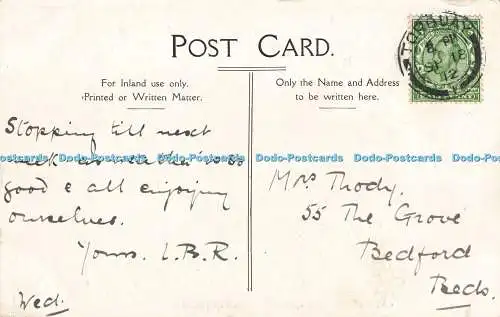 POST CARD.
For Inland use only.
Printed or Written Matter.
Only the Name and Address
to be written here.
TORQUAY
12
Stopping till next
week as weather is so
good & all enjoying
ourselves.
Yours. L.B.R.
Wed.
Mrs Thody.
55 The Grove
Bedford
Beds.
Dodo-Postcards Dodo-Postcards Dodo-Postcards Dodo-Postcards Dodo-Postcards